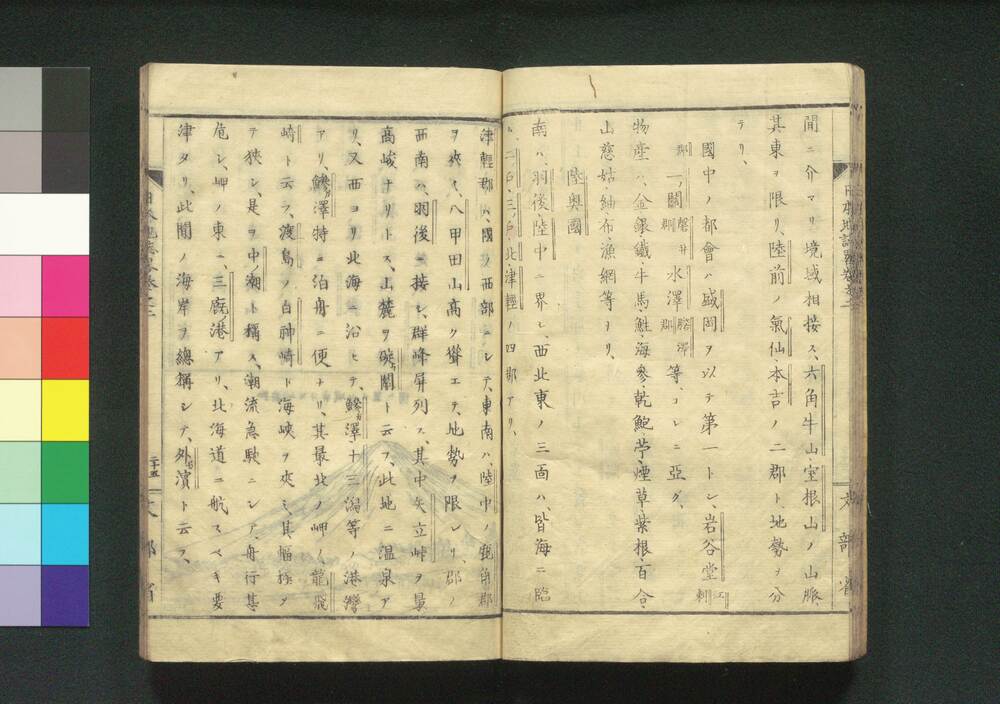 間ニ介マリ境域相接ス、六角牛山室根山ノ山脈、
其東ヲ限リ、陸前ノ氣仙、本吉ノ二郡ト地勢ヲ分
テリ、
國中ノ都會ハ盛岡ヲ以テ第一トシ、岩谷堂江刺
郡一ノ關磐井郡水澤膽澤郡等、コレニ亞グ、
物産ハ、金、銀、鐵、牛、馬、鮭、海參、乾鮑、苧、煙草、紫根、百合、
山慈姑、紬、布、漁網等ヲリ、
陸奥國
南ハ、羽後、陸中ニ界シ、西北東ノ三面ハ、皆海ニ臨
二戸、三戸、北、津輕ノ四郡アリ、
津輕郡ハ、國ノ西部ニシテ、東南ハ、陸中ノ鹿角郡
ヲ夾ミ、八甲田山高ク聳エテ、地勢ヲ限レリ、郡ノ
西南ハ、羽後ニ接シ、群峰屏列ス、其中矢立峠ヲ最
高峻ナリトス、山麓ヲ碇ガ關ト云フ、此地ニ温泉ア
リ、又西ヨリ北海ニ沿ヒテ、鰺ガ澤、十三潟等ノ港灣
アリ、鰺ガ澤特ニ泊舟ニ便ナリ、其最北ノ岬ノ龍飛
崎ト云フ、渡島ノ白神崎ト海峽ヲ夾ミ、其幅極メ
テ狹シ、是ヲ中ノ潮ト稱ス、潮流急駛ニシテ、舟行甚
危シ、岬ノ東ニ、三廐港アリ、北海道ニ航スベキ要
津タリ、此間ノ海岸ヲ總稱シテ、外ガ濱ト云フ、
二十五
文部省
文部省